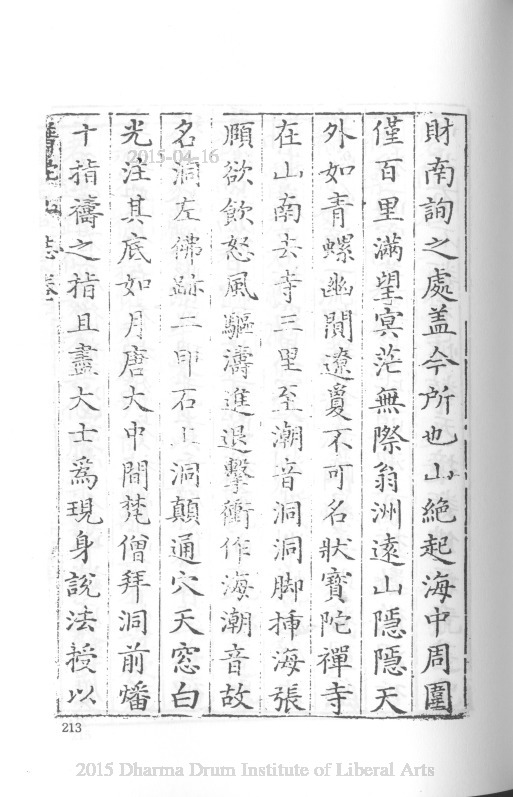 財南詢之處盖今所也山絶起海中周圍
僅百里滿望㝠茫無際翁洲遠山隱隱天
外如青螺幽閴遼敻不可名狀寳陀禪寺
在山南去寺三里至潮音洞洞脚揷海張
頤欲飲怒風驅濤進退擊衝作海潮音故
名洞左佛跡二印石上洞顛通穴天窓白
光注其底如月唐大中間梵僧拜洞前燔
十指禱之指且盡大士爲現身說法授以
山志卷
2015-04-16
213
2015 Dharma Drum Institute of Liberal Arts